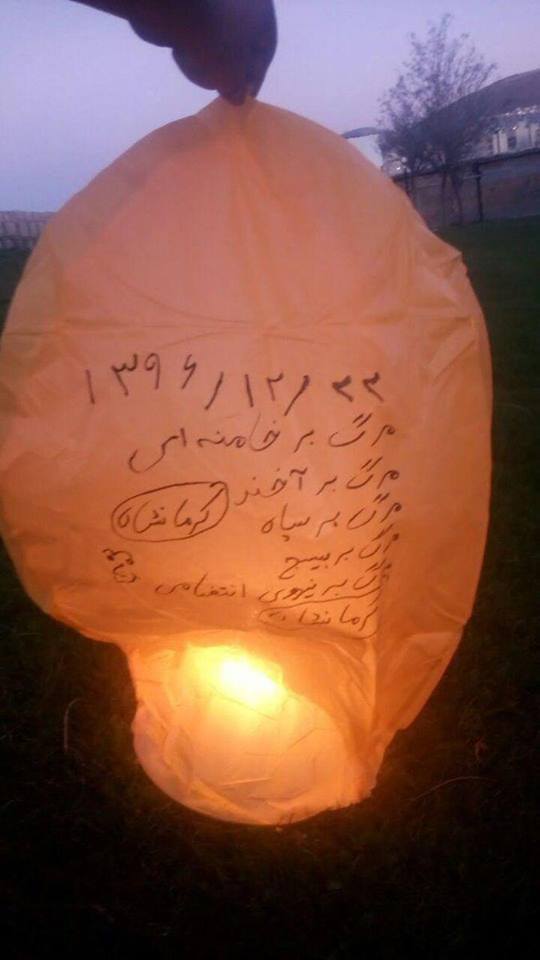 ۱۳۹۶/۱۲/۲۲
مرگ بر خامنه ای
مرگ بر آخند
مرگ بر سپاه کرمانشاه
مرگ بر بسیج
مرگ بر نیروی انتضامی
کرمانشاه